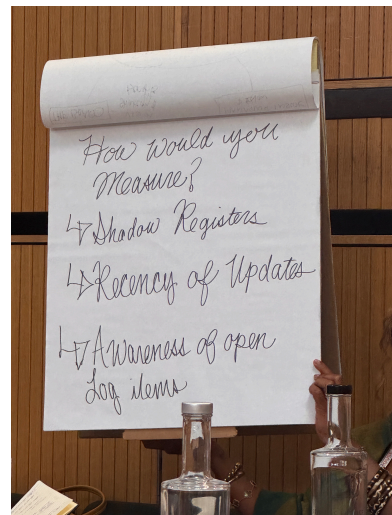 How would you
Measure?
↳ Shadow Registers
↳ Recency of Updates
↳ Awareness of open
Log items